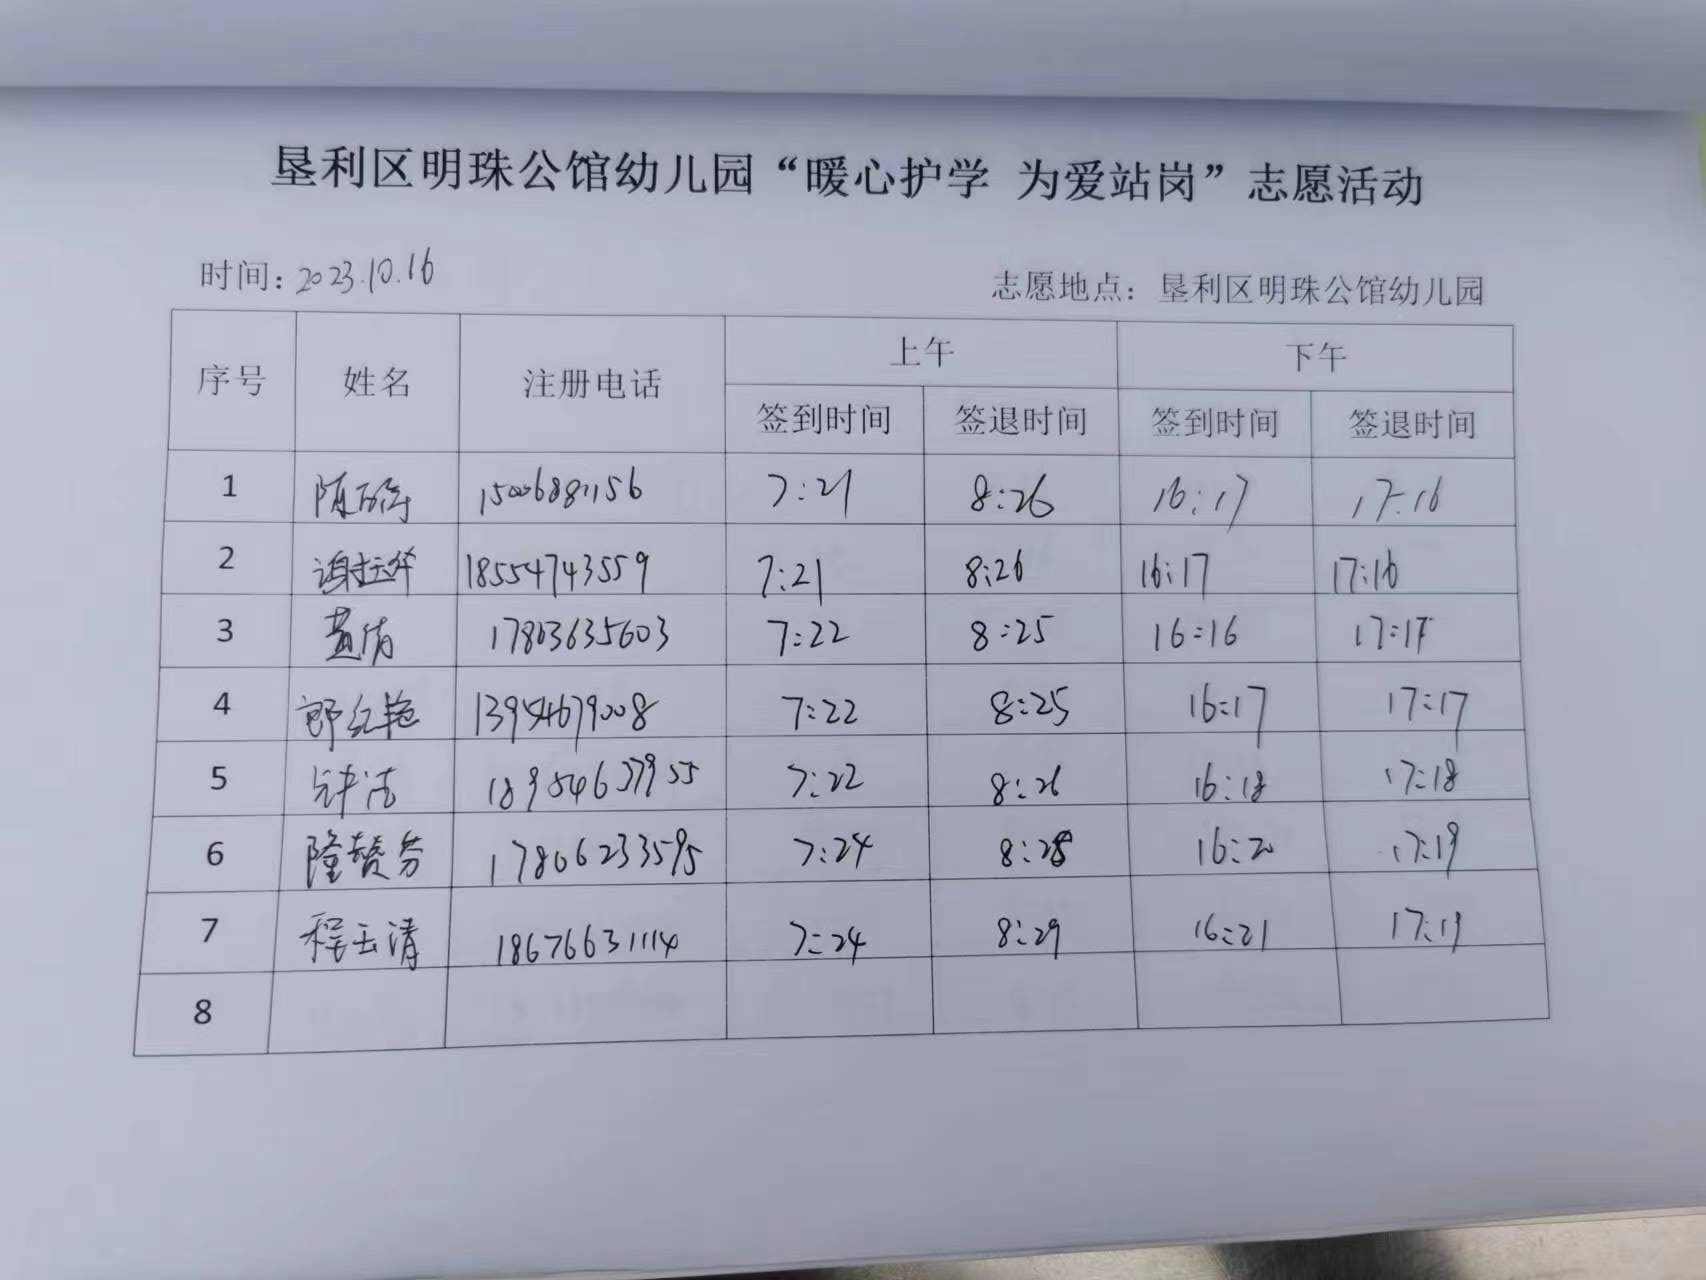 垦利区明珠公馆幼儿园“暖心护学 为爱站岗”志愿活动
时间：2023.10.16 志愿地点：垦利区明珠公馆幼儿园
序号 姓名 注册电话 上午 下午
签到时间 签退时间 签到时间 签退时间
1 15006881156 7:21 8:26 16:17 17:16
2 18554743559 7:21 8:26 16:17 17:16
3 黄倩 17803635603 7:22 8:25 16:16 17:17
4 13954679008 7:22 8:25 16:17 17:17
5 18954637955 7:22 8:26 16:18 17:18
6 隆赞芬 17806233595 7:24 8:28 16:20 17:19
7 程玉清 18676631114 7:24 8:29 16:21 17:19
8